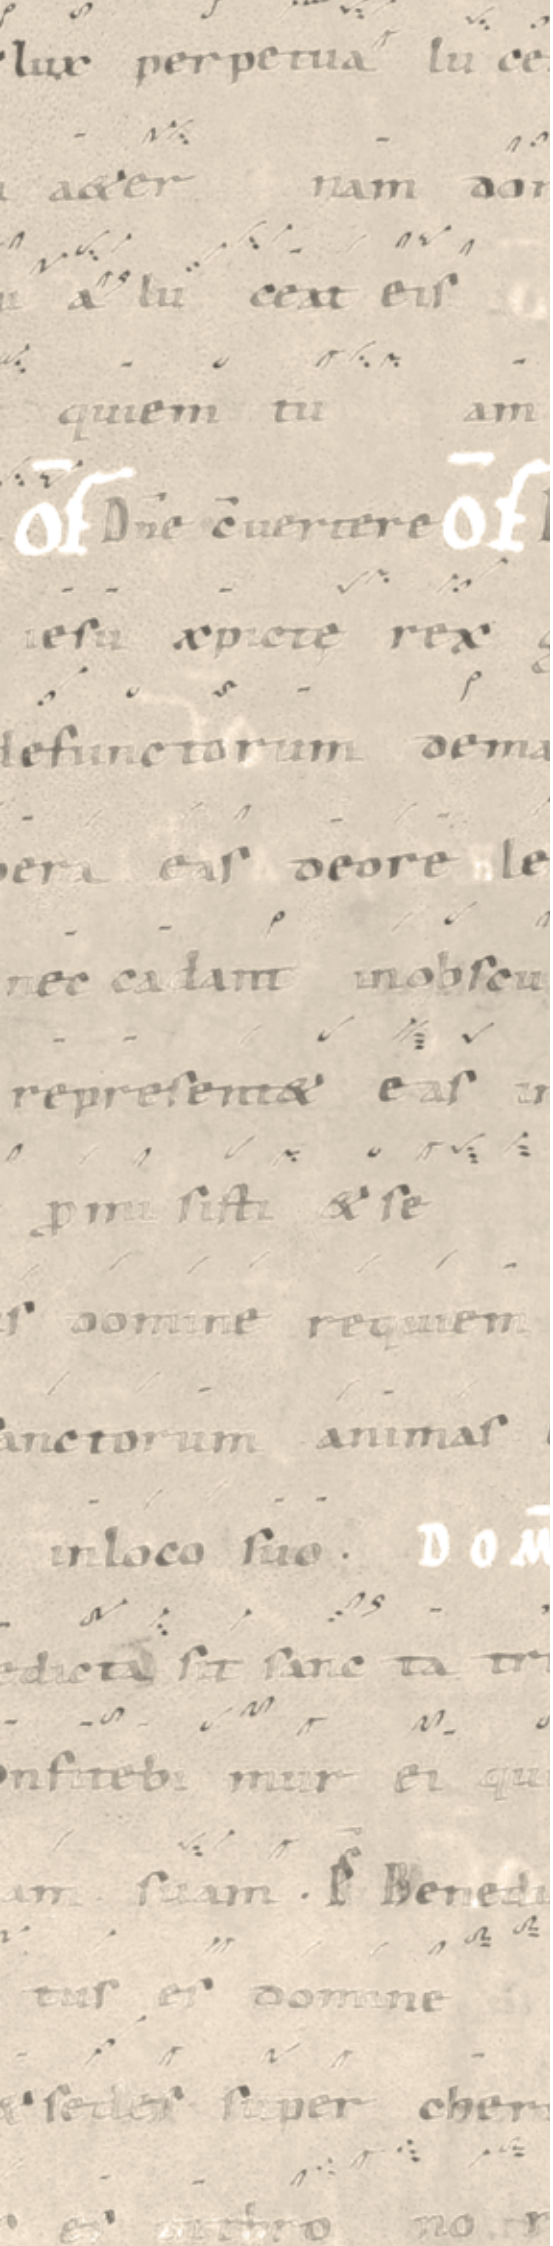 lux perpetua lu ce
aeter nam dom
a lu ceat eis
quiem tu am
OF Dne cuertere OF
iesu xpicte rex g
defunctorum dema
pera eas deore le
nec cadant inobscu
representæ eas in
pmi sisti & se
is domine requiem
sanctorum animas
inloco suo. DOM
edicta sit sanc ta tri
onfitebi mur ei qui
am suam. Ps Benedi
tus es domine
& sedes super cheru
es inthro no r